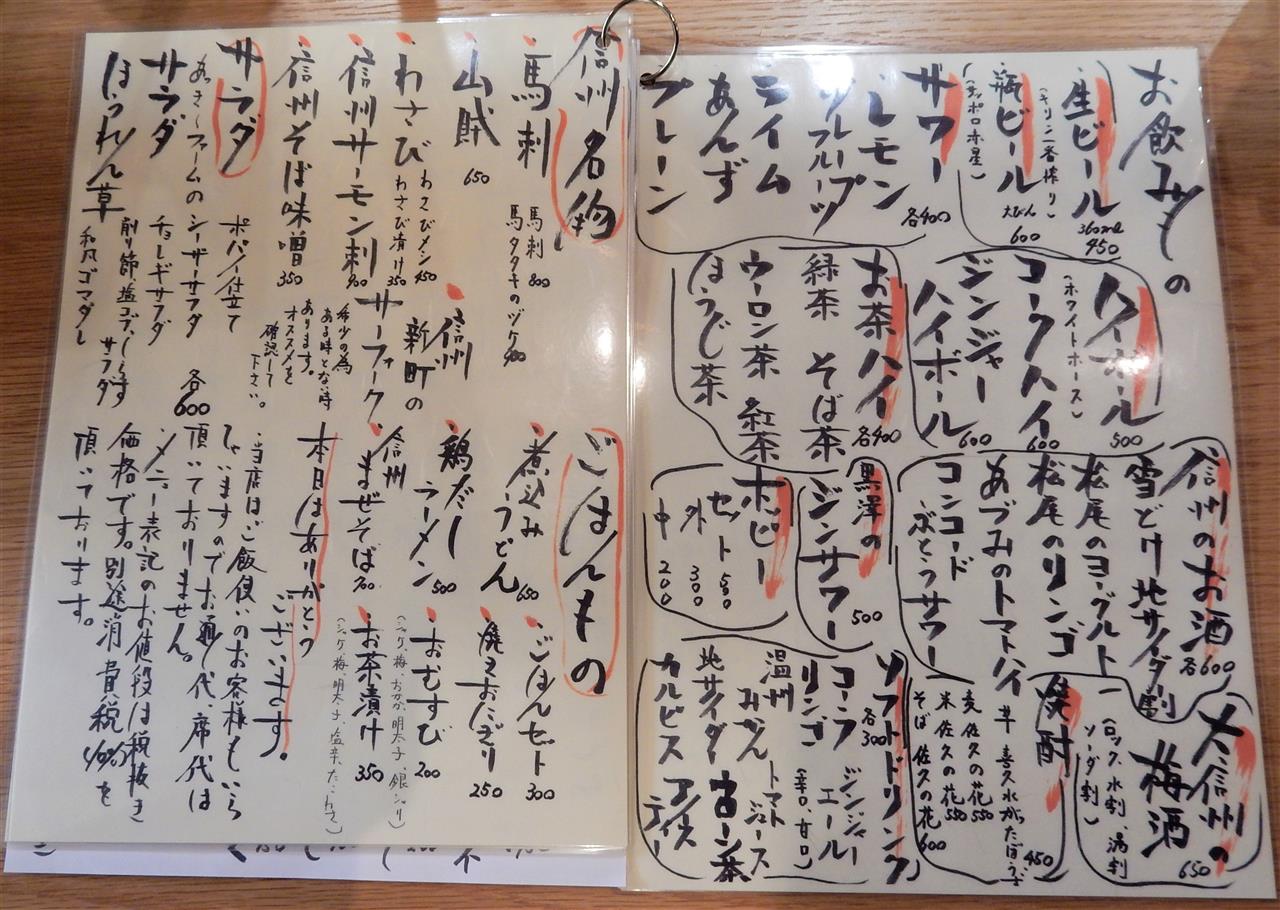 お飲みもの
生ビール 360ml 450
(キリン一番搾り)
瓶ビール 大びん 600
(サッポロ赤星)
サワー 各400
レモン
グレープフルーツ
ライム
あんず
プレーン
ハイボール 500
(ホワイトホース)
コークハイ 600
ジンジャーハイボール 600
お茶ハイ 各400
緑茶 そば茶
ウーロン茶 紅茶
ほうじ茶
信州のお酒 各600
雪どけ地サイダー割
松尾のヨーグルト
松尾のリンゴ
あづみのトマトハイ
コンコード
ぶどうサワー
黒澤の
ジンサワー 500
ホッピー
セット 500
外 300
中 200
大信州の
梅酒 650
(ロック、水割、湯割
ソーダ割)
焼酎
草 喜久水がったぼうず 450
麦 佐久の花 550
米 佐久の花 550
そば 佐久の花 600
ソフトドリンク 各300
コーラ ジンジャーエール
リンゴ (辛口、甘口)
温州みかん トマトジュース
地サイダー ウーロン茶
カルピス アイスティー
信州名物
馬刺 馬刺 800
馬タタキのヅケ 900
山賊 650
わさび わさびメン 450
わさび漬け 350
信州サーモン刺 900
信州そば味噌 350
信州
新町の
サーフォーク
希少の為
ある時とない時
あります。
オススメを
確認して
下さい。
サラダ
あっきーファームの
サラダ
ほうれん草
ポパイ仕立て
シーザーサラダ
チョレギサラダ
削り節、塩コブ、しらす
サラダ
和風ゴマダレ
各600
ごはんもの
煮込み
うどん 650
鶏だし
ラーメン 500
信州
まぜそば 700
ごはんセット 300
焼きおにぎり 250
おむすび 200
(シャケ、梅、おかか、明太子、銀シャリ)
お茶漬け 350
本日はありがとう
ございます。
当店はご飯使いのお客様もいら
っしゃいますのでお通し代、席代は
頂いておりません。
メニュー表記のお値段は税抜き
価格です。別途消費税10%を
頂いております。